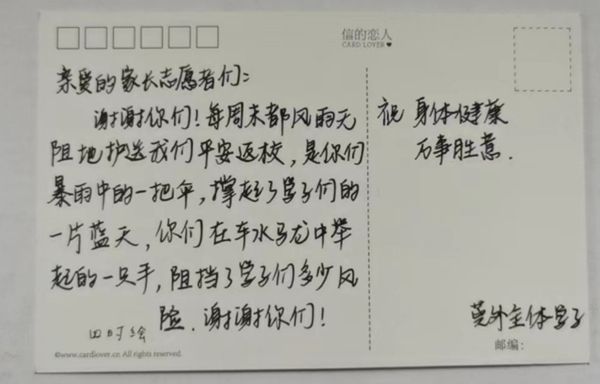 信的恋人
CARD LOVER
亲爱的家长志愿者们：
谢谢你们！每周末都风雨无
阻地护送我们平安返校，是你们
暴雨中的一把伞，撑起了学子们的
一片蓝天，你们在车水马龙中举
起的一只手，阻挡了学子们多少风
险．谢谢你们！
祝 身体健康
万事胜意．
莞外全体学子
邮编：
©www.cardlover.cn All rights reserved.